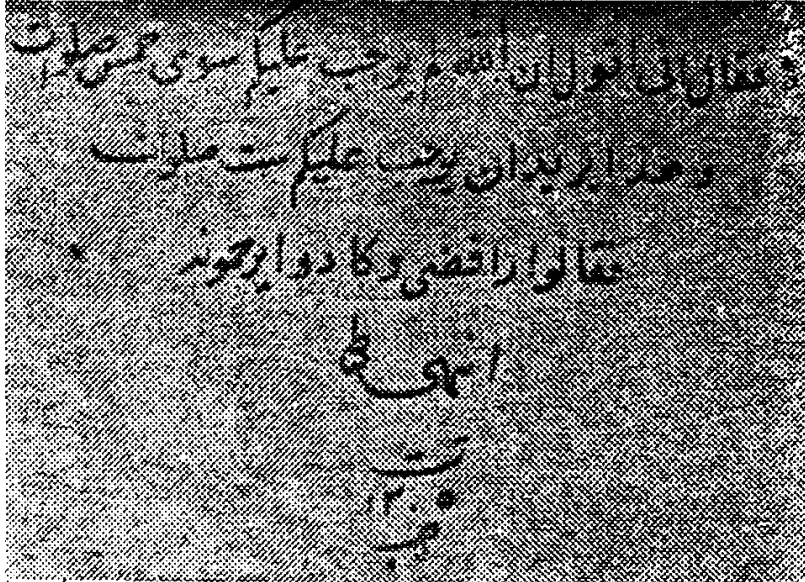 فقال انى اقول ان الله لم يوجب عليكم سوى خمس صلوات
وهذا يريد ان يوجب عليكم ست صلوات
فقالوا رافضى وكادوا يرجمونه
انتهى
تمت
١٣٠٥